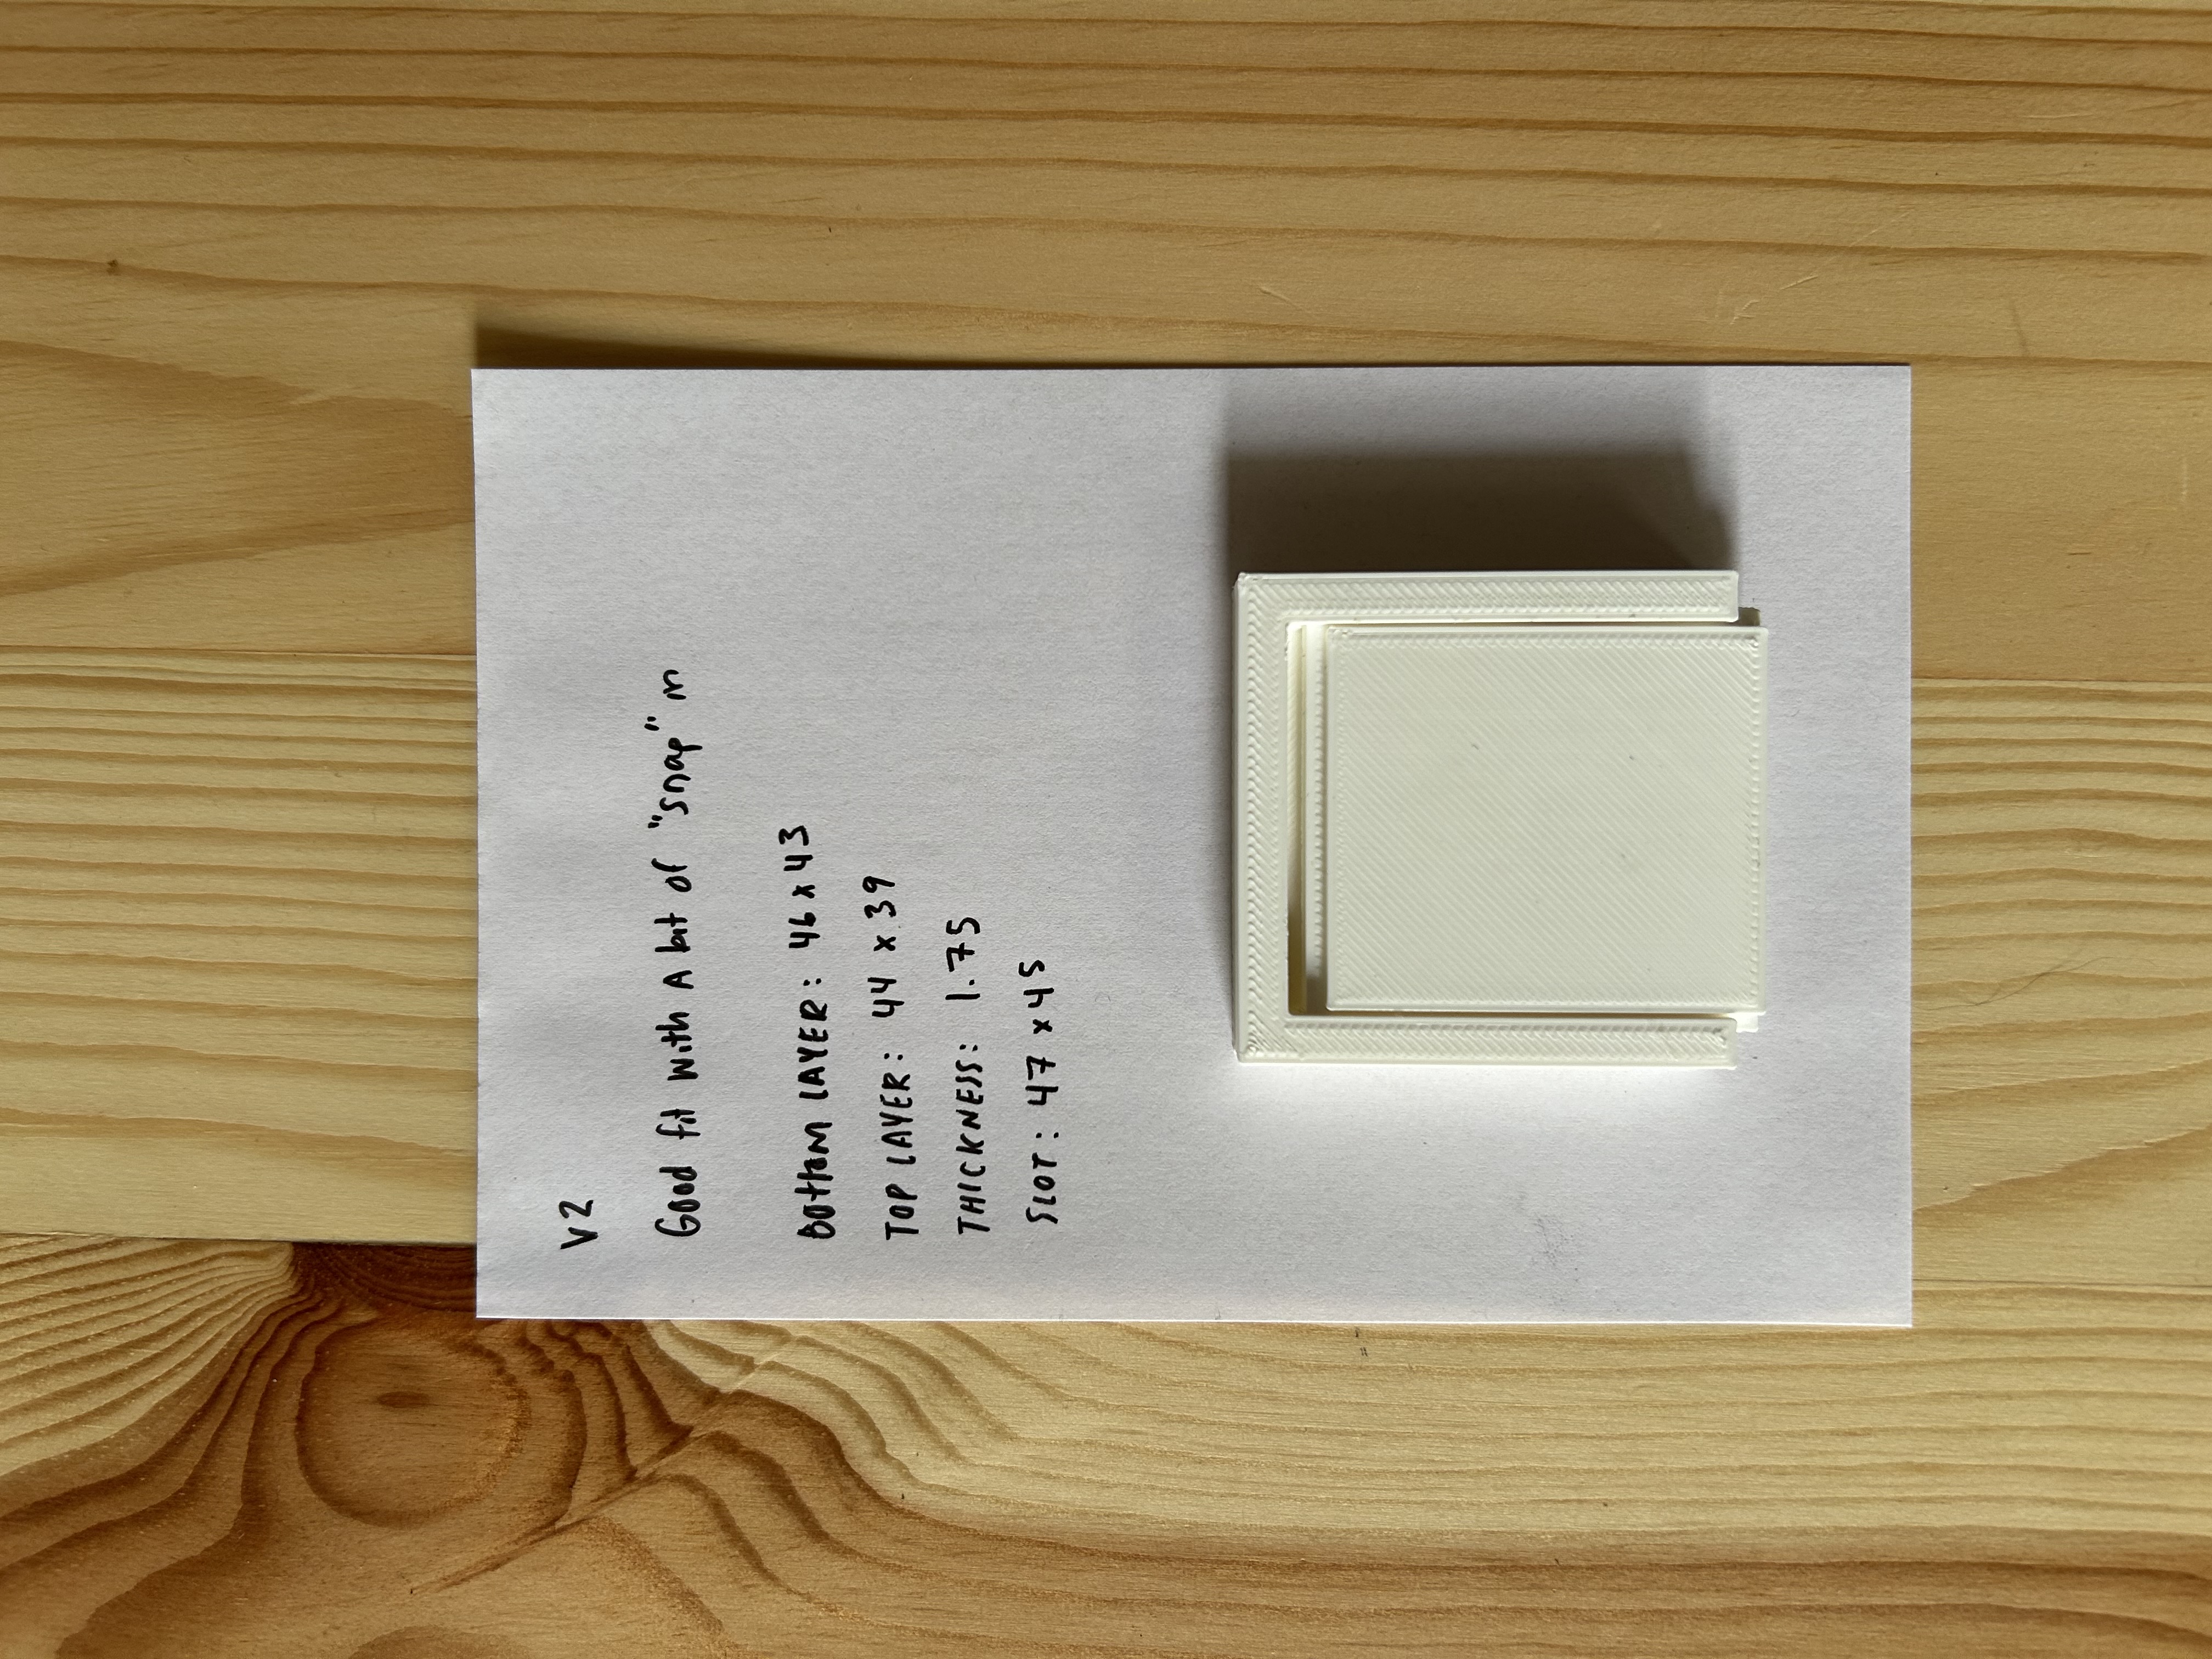 V2
Good fit with A bit of "snap" in
Bottom LAYER: 46 x 43
TOP LAYER: 44 x 39
THICKNESS: 1.75
SLOT: 47 x 45